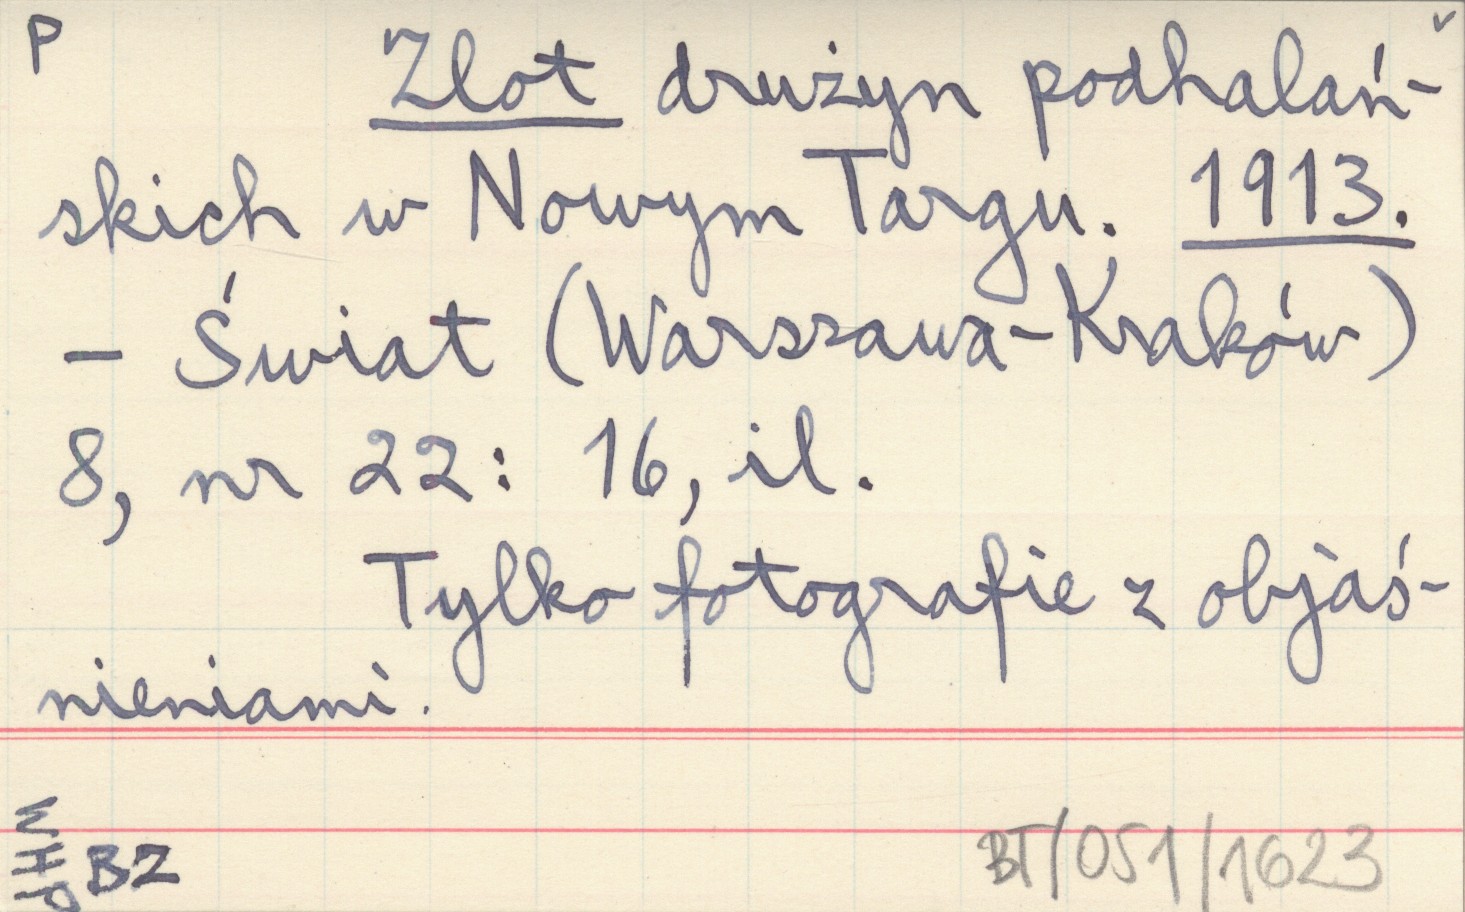 P
v
Zlot drużyn podhalań-
skich w Nowym Targu. 1913.
– Świat (Warszawa-Kraków)
8, nr 22: 16, il.
Tylko fotografie z objaś-
nieniami.
WHP
BZ
BT/051/1623